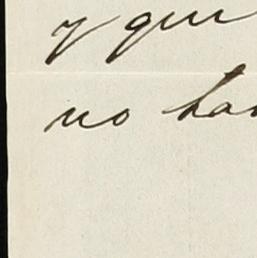 y que
no ha